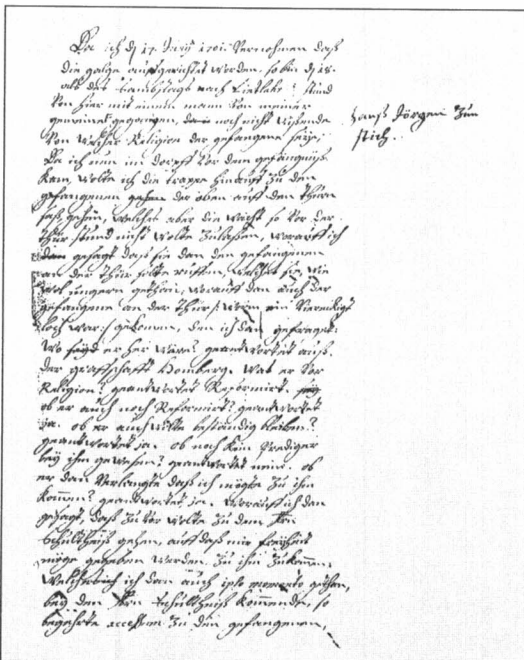 Da ich d 17. Junij 1701 Vernohmen daß
die galge auffgerichtet worden. so bin d 18.
als des Sambstags nach 1 Stund
Von hier mit einem mann Von meiner
gemeinet gegangen, noch nicht wißende
Von welcher Religion der gefangene seye,
Da ich nun im dorff Vor dem gefängnuß
kam, wolte ich die trappe hinauff zu dem
gefangenen gehen der oben auff dem thurn
saß gehen, welches aber die wacht so Vor der
thür stund nicht wolte zulaßen, worauff ich
dan gesagt daß sie dan den gefangenen
an der thür solte ruffen, welches sie, wie
wol ungern gethan, worauff dan auch der
gefangene an der thür/: worin ein Viereckigt
loch war:/ gekommen, den ich dan gefraget:
wo er her wäre? geantwortet auß
der graffschafft Homberg. Was er Vor
Religion? geantwortet Reformirt.
ob er auch noch Reformirt? geantwortet
ja. ob er auch wolte beständig bleiben?
geantwortet ja. ob noch kein Prediger
bey ihm gewesen? geantwortet nein. ob
er dan Verlangte daß ich mögte zu ihm
kommen? geantwortet, ja. Worauff ich dan
gesagt, daß zu Vor wolte zu dem Hrn
Schultheiß gehen, auff daß mir freyheit
möge gegeben werden zu ihm zukommen.
Welches ich dan auch ipso momento gethan,
bey dem Hrn Schultheiß kommende, so
begehrte accessum zu dem gefangenen,
Hanß Jörgen zum
stich.